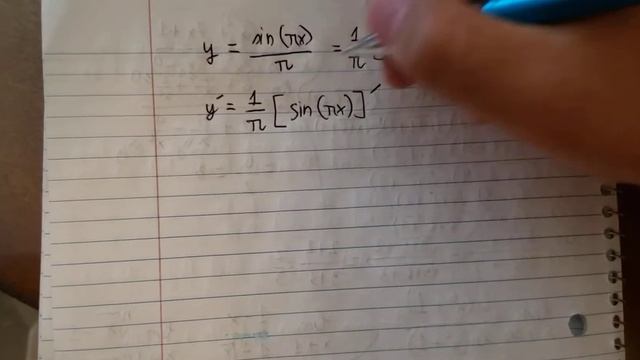 y = sin(πx)/π = 1/π
y′ = 1/π [sin(πx)]′